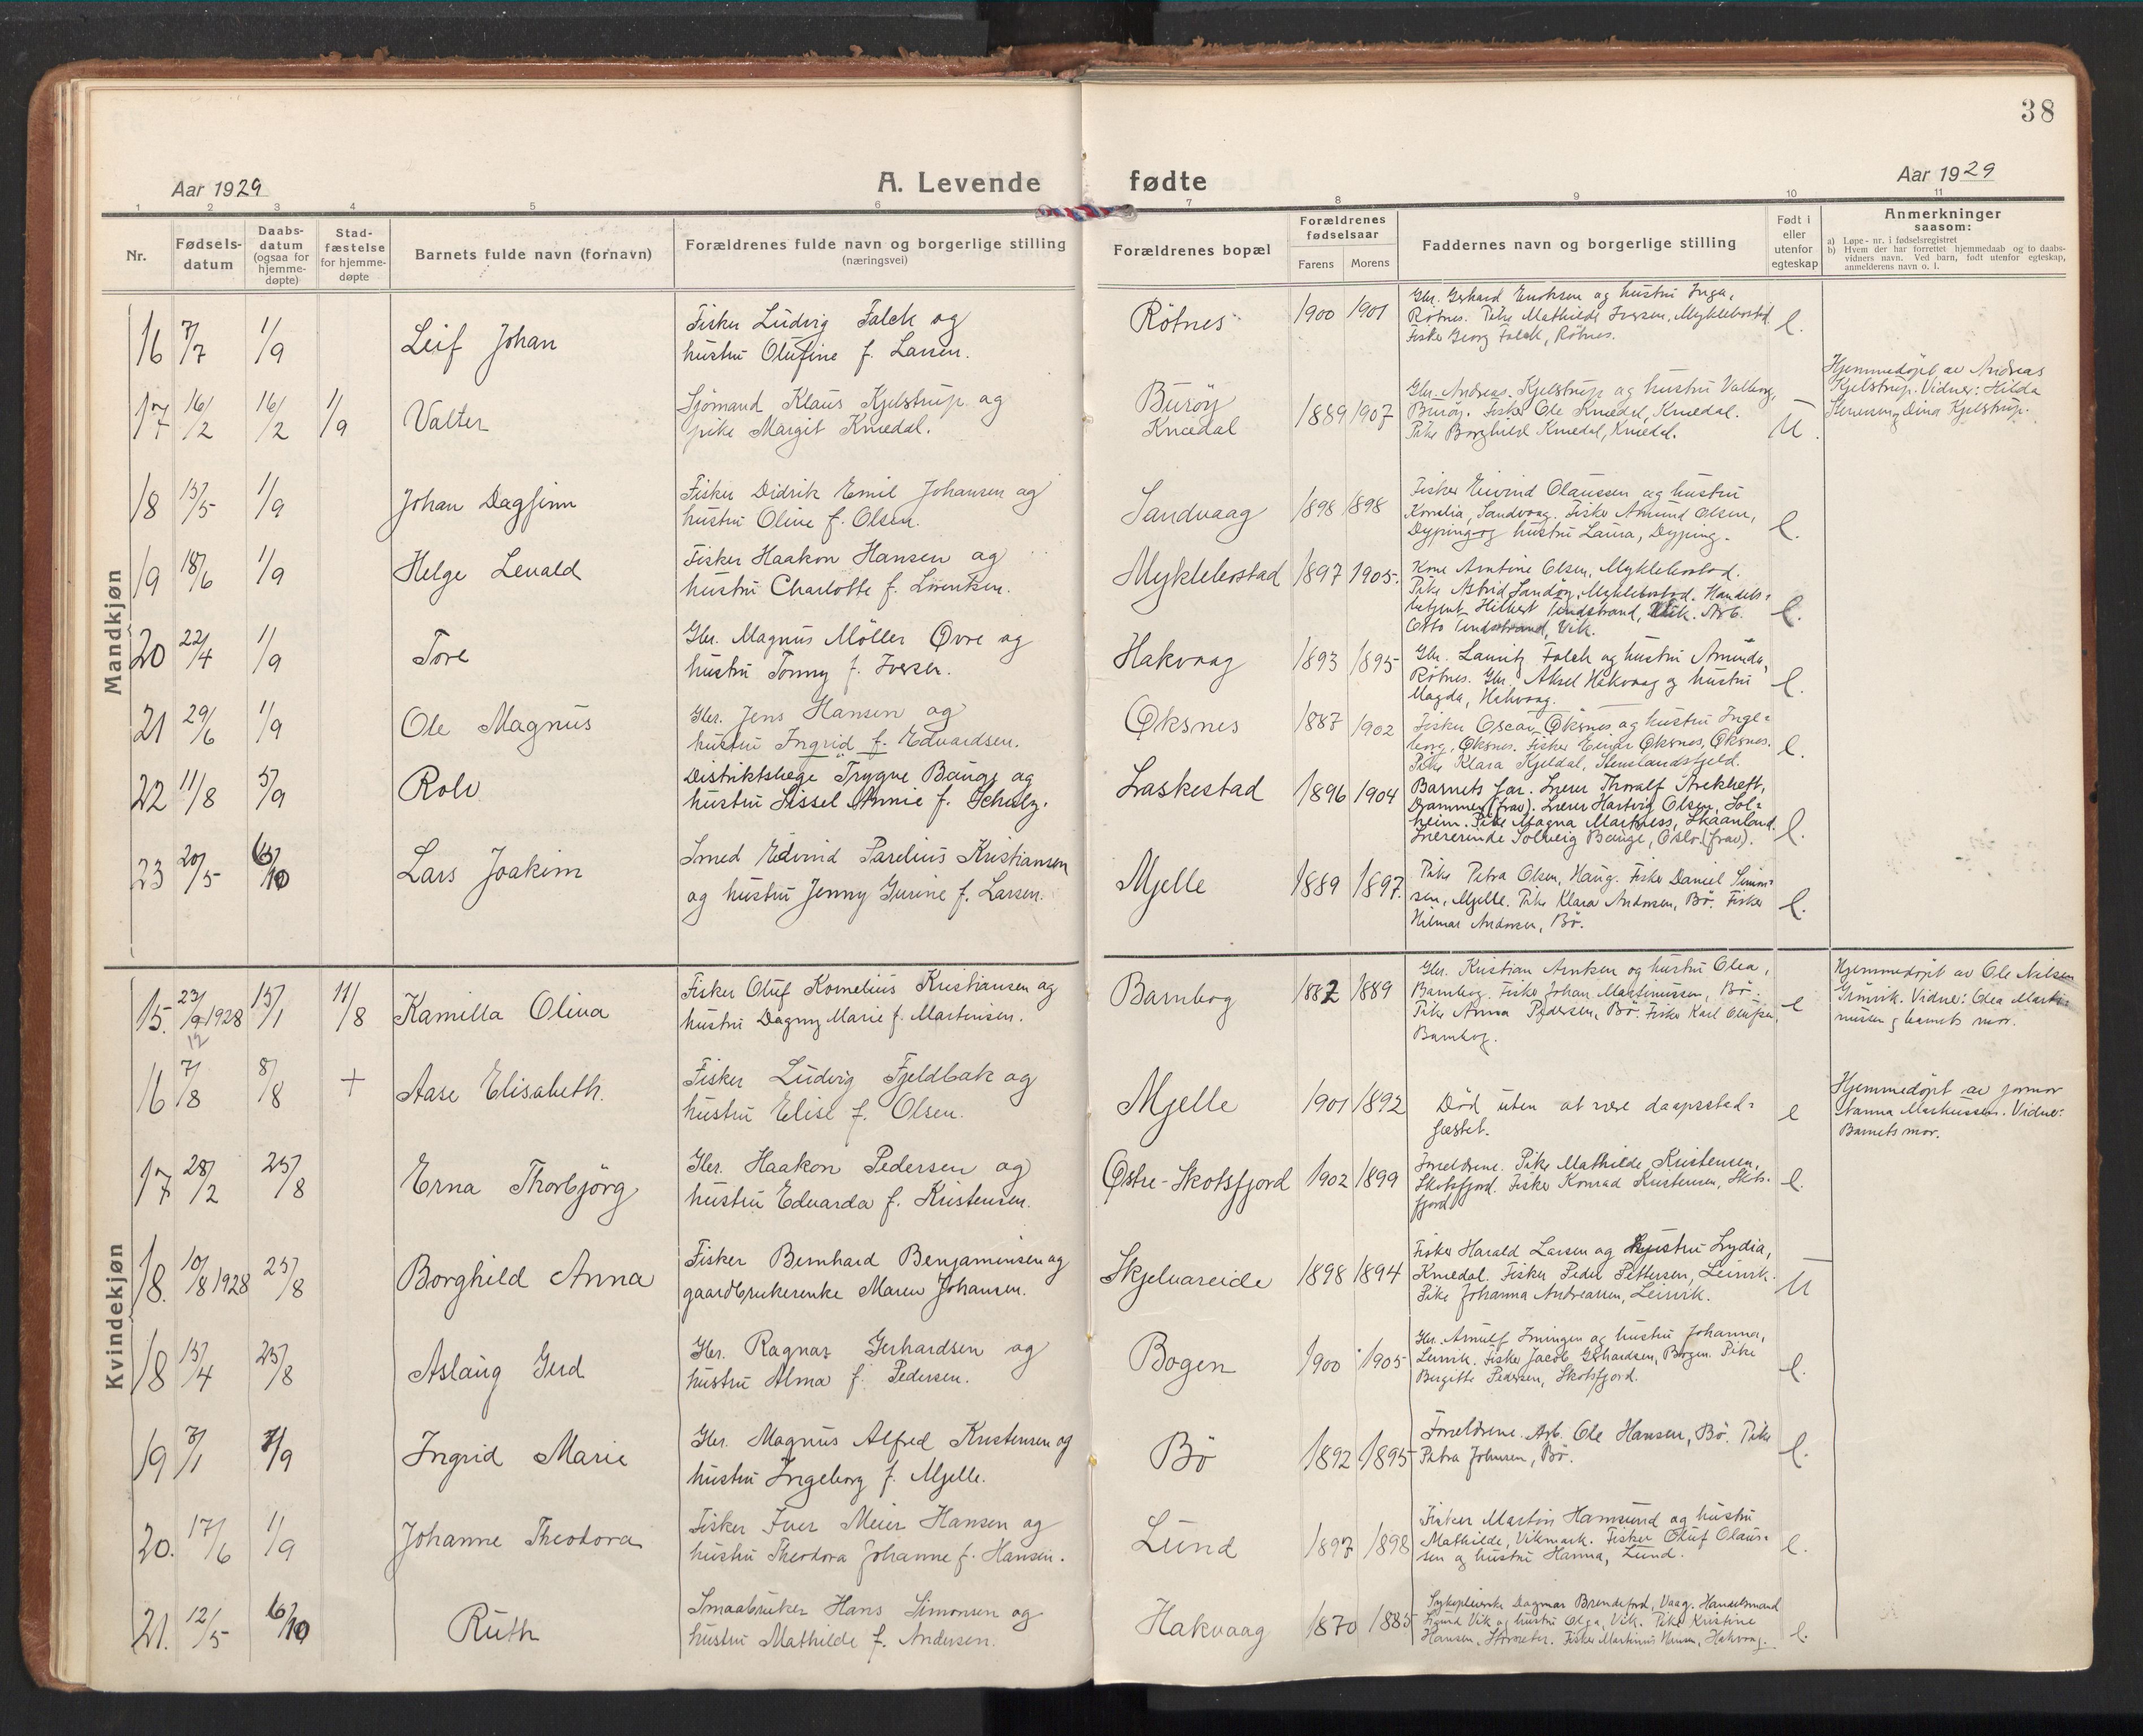 38
Aar 1929
A. Levende fødte
Aar 1929
1 2 3 4 5 6 7 8 9 10 11
Nr.
Fødsels-
datum
Daabs-
datum
(ogsaa for
hjemme-
døpte)
Stad-
fæstelse
for hjemme-
døpte
Barnets fulde navn (fornavn)
Forældrenes fulde navn og borgerlige stilling
(næringsvei)
Forældrenes bopæl
Forældrenes
fødselsaar
Farens Morens
Faddernes navn og borgerlige stilling
Født i
eller
utenfor
egteskap
Anmerkninger
saasom:
a) Løpe-nr. i fødselsregistret
b) Hvem der har forrettet hjemmedaab og to daabs-
vidners navn. Ved barn, født utenfor egteskap,
anmelderens navn o. l.
Mandkjøn
16 7/7 1/9 Leif Johan
Fisker Ludvig Falch og
hustru Olufine f. Larsen.
Rötnes 1900 1901
Gbr. Gerhard Eriksen og hustru Inga,
Rötnes. Pike Mathilde Iversen, Myklebostad.
Fisker Georg Falch, Rötnes.
e.
17 16/2 16/2 1/9 Valter
Sjömand Klaus Kjelstrup og
pike Margit Knædal.
Buröy
Knædal
1889 1907
Gbr. Andreas Kjelstrup og hustru Valborg,
Buröy. Fisker Ole Knædal, Knædal.
Pike Borghild Knædal, Knædal.
U.
Hjemmedøpt av Andreas
Kjelstrup. Vidner: Hilda
Dina Kjelstrup.
18 15/5 1/9 Johan Dagfinn
Fisker Didrik Emil Johansen og
hustru Oline f. Olsen.
Sandvaag 1898 1898
Fisker Eivind Olaussen og hustru
Kornelia, Sandvaag. Fisker Amund Olsen,
Dyping og hustru Laura, Dyping.
e.
19 18/6 1/9 Helge Levald
Fisker Haakon Hansen og
hustru Charlotte f. Lorentsen.
Myklebostad 1897 1905.
Kone Arntine Olsen, Myklebostad.
Pike Astrid Sandöy, Myklebostad. Handels-
betjent Hilbert Tindstrand, Vik. Arb.
Otto Tindstrand, Vik.
e.
20 22/4 1/9 Tore
Gbr. Magnus Möller Øvre og
hustru Tonny f. Iversen.
Hakvaag 1893 1895
Gbr. Lauritz Falch og hustru Amunda,
Rötnes. Gbr. Aksel Hakvaag og hustru
Magda, Hakvaag.
e.
21 29/6 1/9 Ole Magnus
Gbr. Jens Hansen og
hustru Ingrid f. Edvardsen.
Øksnes 1887 1902
Fisker Oscar Øksnes og hustru Inge-
borg, Øksnes. Fisker Einar Øksnes, Øksnes.
Pike Klara Kjeldal,
e.
22 11/8 5/9 Rolv
Distriktslæge Trygve Bauge og
hustru Sissel Annie f. Schulz.
Laskestad 1896 1904
Barnets far. Lærer Thorvalf
Drammen (frav). Lærer Hartvig Olsen, Sol-
heim. Pike Magna Martness, Skaanland.
Lærerinde Solveig Bauge, Oslo (frav).
e.
23 20/5 6/10 Lars Joakim
Smed Edvind Parelius Kristiansen
og hustru Jenny Gurine f. Larsen.
Mjelle 1889 1897.
Pike Petra Olsen, Haug. Fisker Daniel Simon-
sen, Mjelle. Pike Klara Andersen, Bö. Fisker
Hilmar Andersen, Bö.
e.
Kvindekjøn
15. 23/9 1928 12 15/1 11/8 Kamilla Olina
Fisker Oluf Kornelius Kristiansen og
hustru Dagny Marie f. Martinsen.
Barnhog 1887 1889
Gbr. Kristian Arntsen og hustru Olea,
Barnhog. Fisker Johan Martinussen, Bö.
Pike Anna Pedersen, Bö. Fisker Karl Olufsen,
Barnhog.
e
Hjemmedøpt av Ole Nilsen
Grönvik. Vidner: Olea Marti-
nussen og barnets mor.
16 7/8 8/8 + Aase Elisabeth.
Fisker Ludvig Fjeldbak og
hustru Elise f. Olsen.
Mjelle 1901 1892
Död uten at være daapsstad-
fæstet.
e
Hjemmedøpt av formor
Nanna Markussen. Vidne:
Barnets mor.
17 28/2 25/8 Erna Thorbjörg
Gbr. Haakon Pedersen og
hustru Edvarda f. Kristensen.
Østre-Skotsfjord 1902 1899
Forældrene. Pike Mathilde Kristensen,
Skotsfjord. Fisker Konrad Kristensen, Skots-
fjord.
e.
18. 10/8 1928 25/8 Borghild Anna
Fisker Bernhard Benjaminsen og
gaardbrukerenke Maren Johansen.
Skjelvareide 1898 1894
Fisker Harald Larsen og hustru Lydia,
Knædal. Fisker Peder Pettersen, Leirvik.
Pike Johanna Andreassen, Leirvik.
U
18 15/4 25/8 Aslaug Gerd
Gbr. Ragnar Gerhardsen og
hustru Alma f. Pedersen.
Bogen 1900 1905
Gbr. Arnulf Imingen og hustru Johanna,
Leirvik. Fisker Jacob Gerhardsen, Bogen. Pike
Birgitte Pedersen, Skotsfjord.
e.
19 3/1 1/9 Ingrid Marie
Gbr. Magnus Alfred Kristensen og
hustru Ingeborg f. Mjelle.
Bö 1892 1895
Forældrene. Arb. Ole Hansen, Bö. Pike
Petra Johnsen, Bö.
e.
20. 17/6 1/9 Johanne Theodora
Fisker Iver Meier Hansen og
hustru Theodora Johanne f. Hansen.
Lund 1897 1898
Fisker Martin Hamsund og hustru
Mathilde, Vikmark. Fisker Oluf Olaus-
sen og hustru Hanna, Lund.
e.
21. 12/5 6/10 Ruth
Smaabruker Hans Simonsen og
hustru Mathilde f. Andersen.
Hakvaag 1870 1885
Sykepleierske Dagmar Brendeford, Vaag. Handelsmand
Sigurd Vik og hustru Olga, Vik. Pike Kristine
Hansen, Storsæter. Fisker Martinus Hansen, Hakvaag.
e.